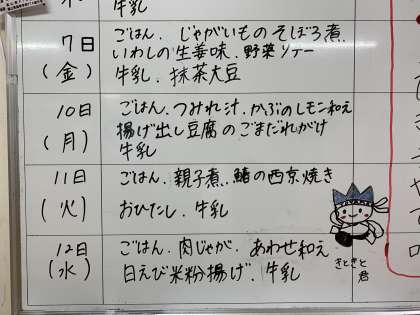 牛乳
7日
(金)
ごはん、じゃがいものそぼろ煮、
いわしの生姜味、野菜ソテー
牛乳、抹茶大豆
10日
(月)
ごはん、つみれ汁、かぶのレモン和え
揚げ出し豆腐のごまだれがけ
牛乳
11日
(火)
ごはん、親子煮、鰆の西京焼き
おひたし、牛乳
12日
(水)
ごはん、肉じゃが、あわせ和え
白えび米粉揚げ、牛乳
きときと
君